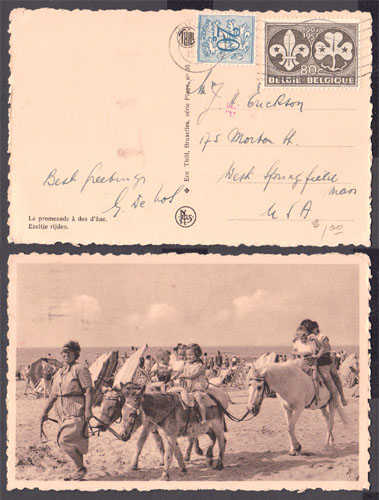 20c
1907 1957
80c
BELGIE-BELGIQUE
Mr J. H. Erickson
175 Morton St.
West Springfield
Mass
USA
$1.00
Best Greetings
G. De Vos
La promenade à dos d'âne.
Ezeltje rijden.
Ern Thill, Bruxelles, série Plages n° 35